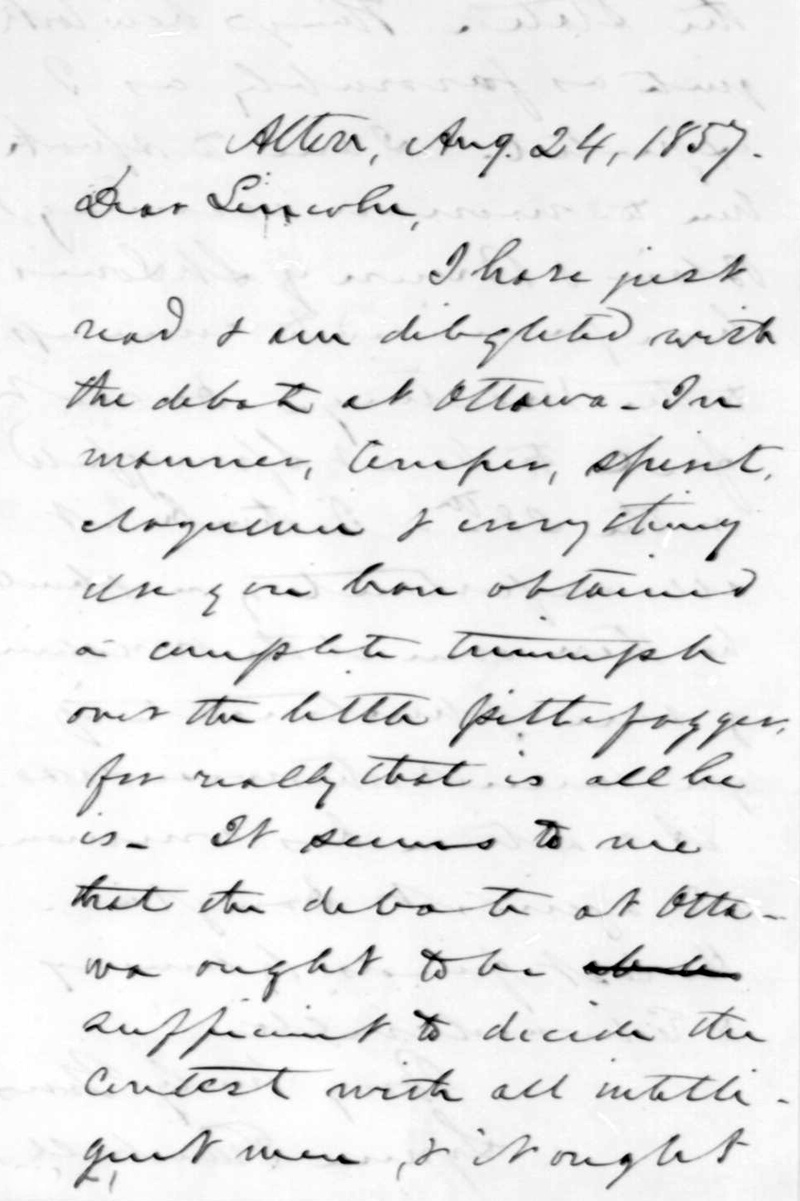 Alton, Aug. 24, 1857.
Dear Lincoln,
I have just
read & am delighted with
the debate at Ottawa - In
manner, temper, spirit,
eloquence & every thing
else you have obtained
a complete triumph
over the little pittifogger,
for really that is all he
is - It seems to me
that the debate at Otta-
wa ought to be
sufficient to decide the
contest with all intelli-
gent men, & it ought